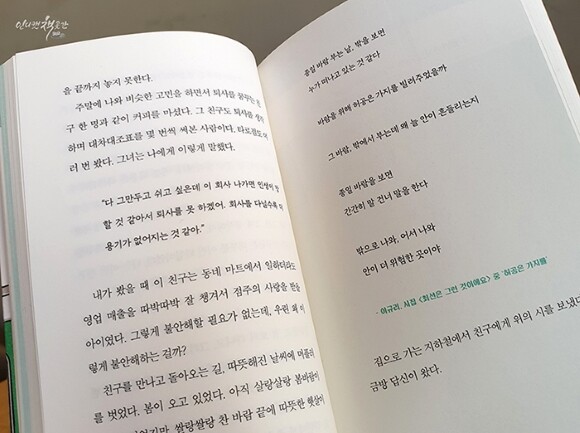 인디캣책곳간
을 끝까지 놓지 못한다.
주말에 나와 비슷한 고민을 하면서 퇴사를 꿈꾸는 친
구 한 명과 같이 커피를 마셨다. 그 친구도 퇴사를 생각
하며 대차대조표를 몇 번씩 써본 사람이다. 타로점도 여
러 번 봤다. 그녀는 나에게 이렇게 말했다.
“다 그만두고 쉬고 싶은데 이 회사 나가면 인생의
할 것 같아서 퇴사를 못 하겠어. 회사를 다닐수록
용기가 없어지는 것 같아.”
내가 봤을 때 이 친구는 동네 마트에서 일하더라도
영업 매출을 따박따박 잘 챙겨서 점주의 사랑을 받을
아이였다. 그렇게 불안해할 필요가 없는데, 우린 왜 이
렇게 불안해하는 걸까?
친구를 만나고 돌아오는 길, 따뜻해진 날씨에 머플러
를 벗었다. 봄이 오고 있었다. 아직 살랑살랑 봄바람이
쌀랑쌀랑 찬 바람 끝에 따뜻한 햇살이
종일 바람 부는 날, 밖을 보면
누가 떠나고 있는 것 같다
바람을 위해 허공은 가지를 빌려주었을까
그 바람, 밖에서 부는데 왜 늘 안이 흔들리는지
종일 바람을 보면
간간히 말 건너 말을 한다
밖으로 나와, 어서 나와
안이 더 위험한 곳이야
- 이규리, 시집 <최선은 그런 것이에요> 중 ‘허공은 가지를’
집으로 가는 지하철에서 친구에게 위의 시를 보냈다.
금방 답신이 왔다.